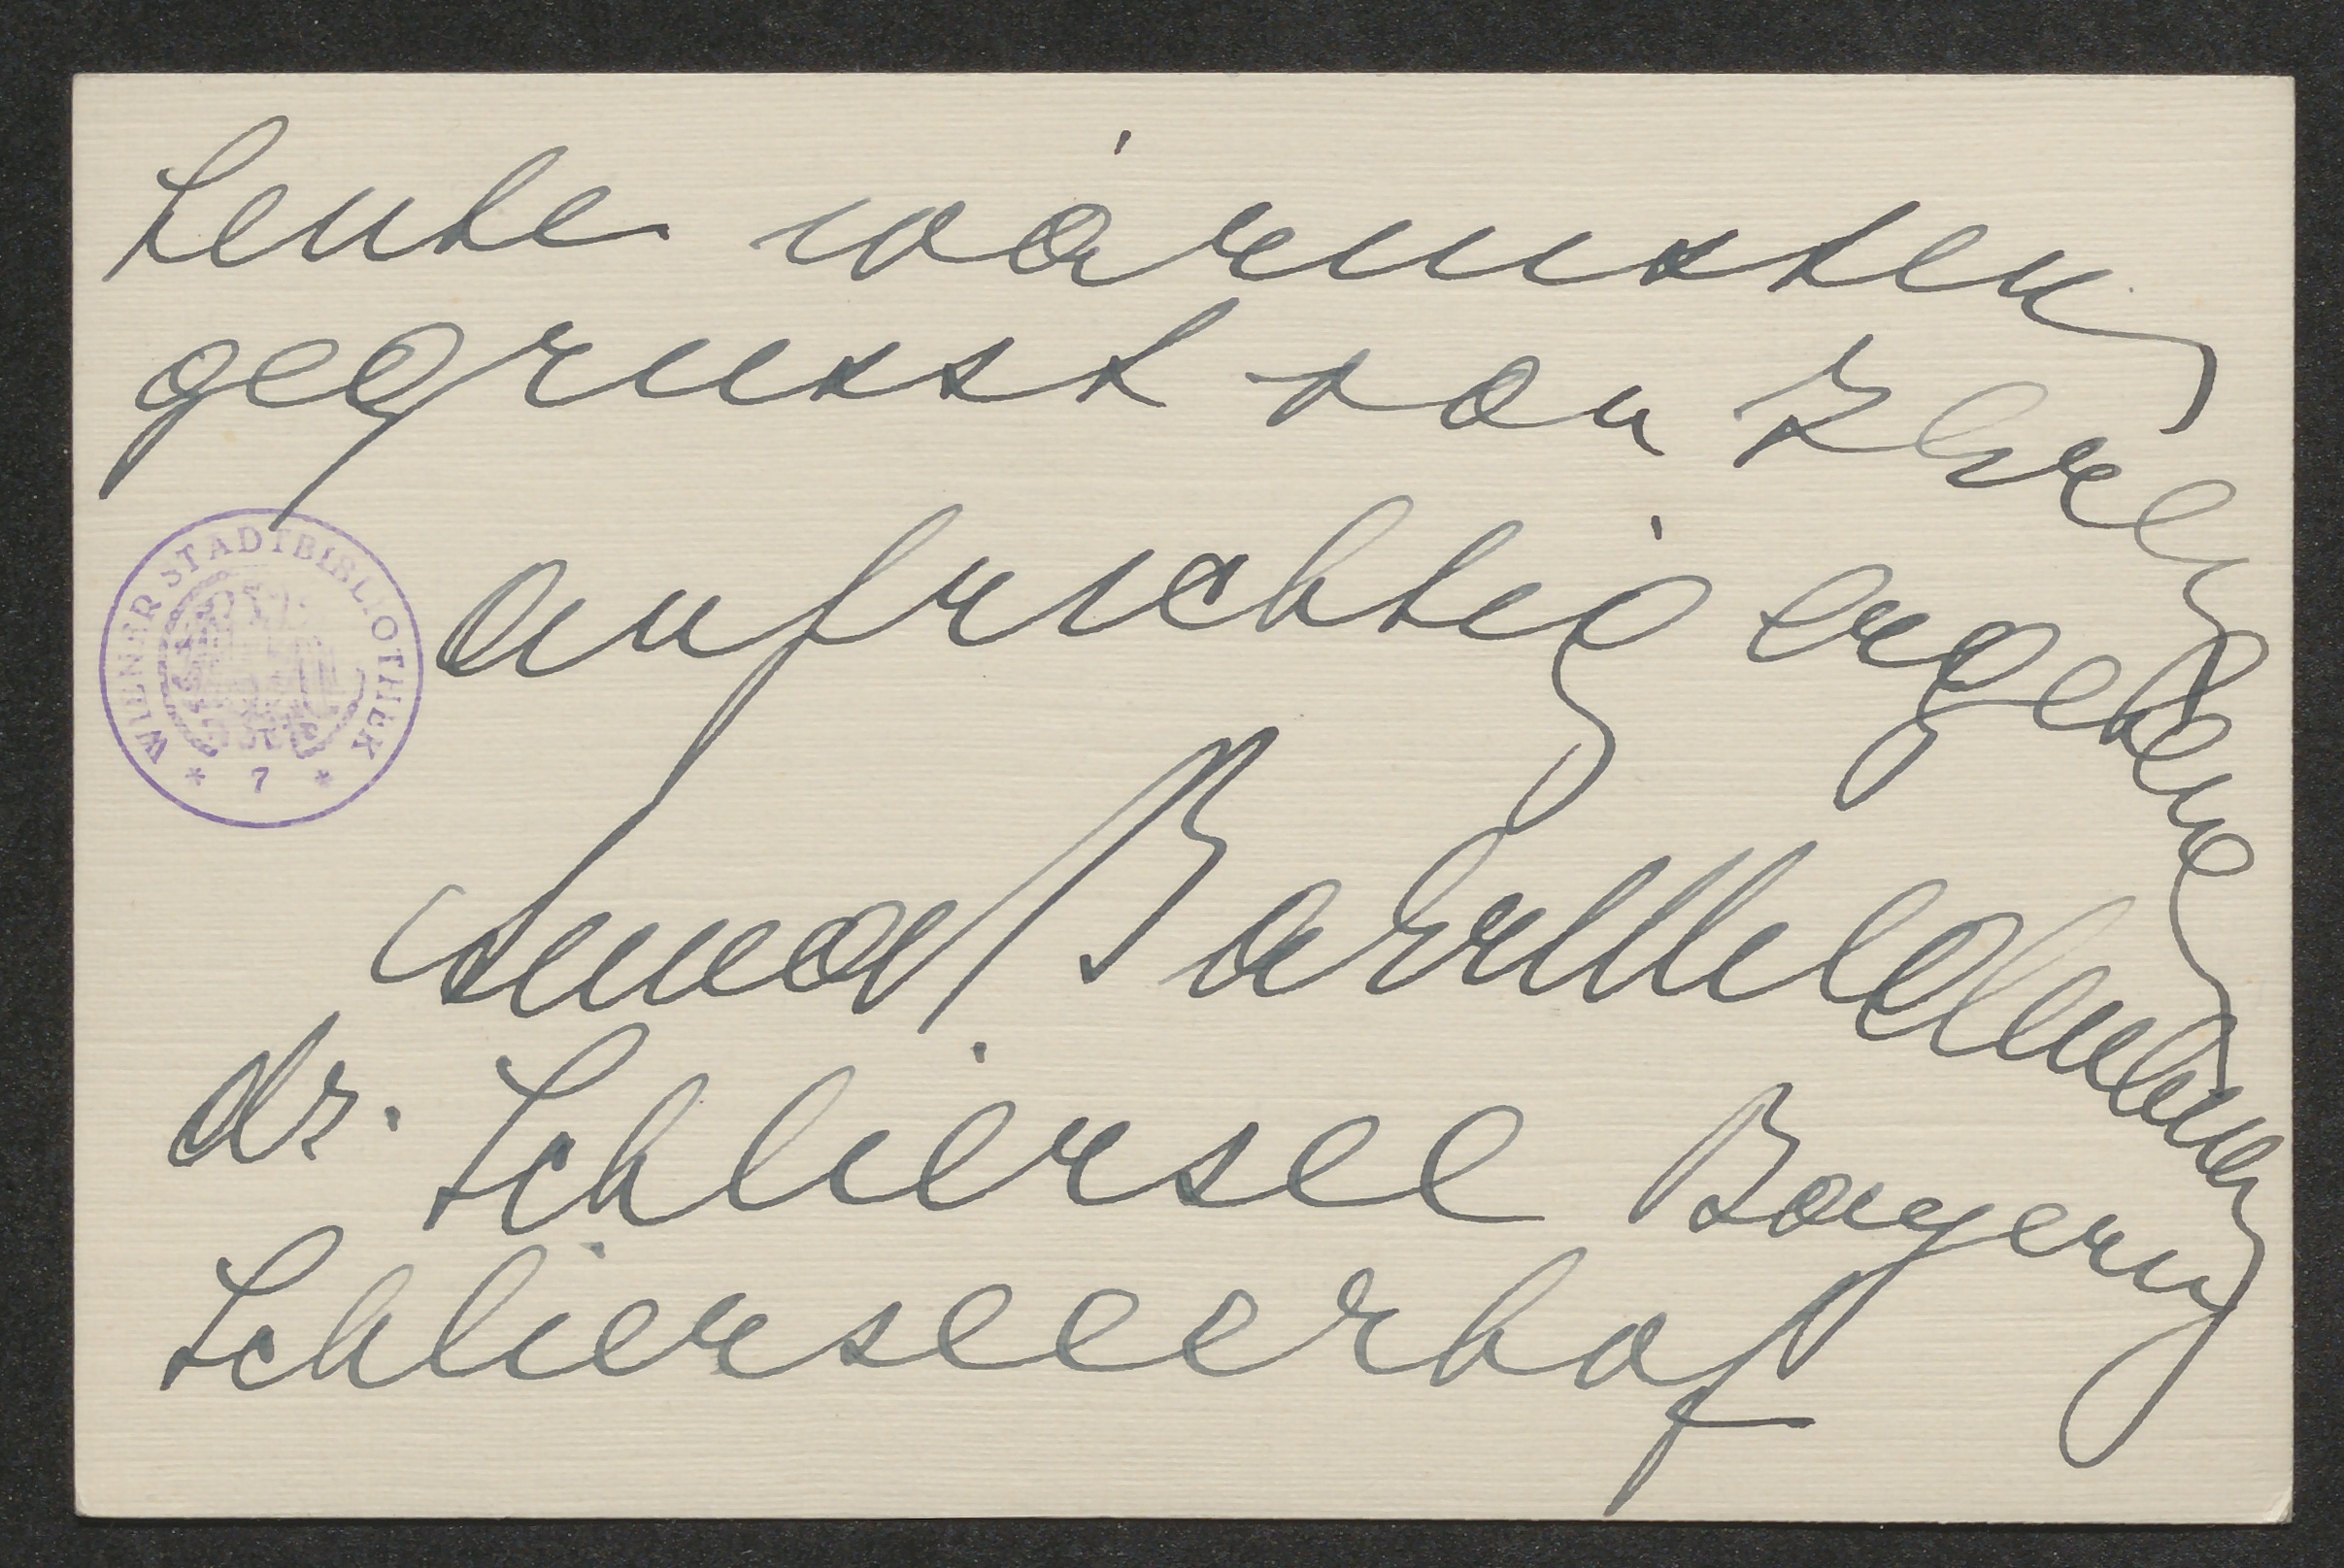 Leute wärmsten
gegrusst von Ihrer
aufrichtig ergebenen
Anna Bahr Mildenburg
dz. Schliersee Bayern
Schlierseeerhof
WIENER STADTBIBLIOTHEK
* 7 *